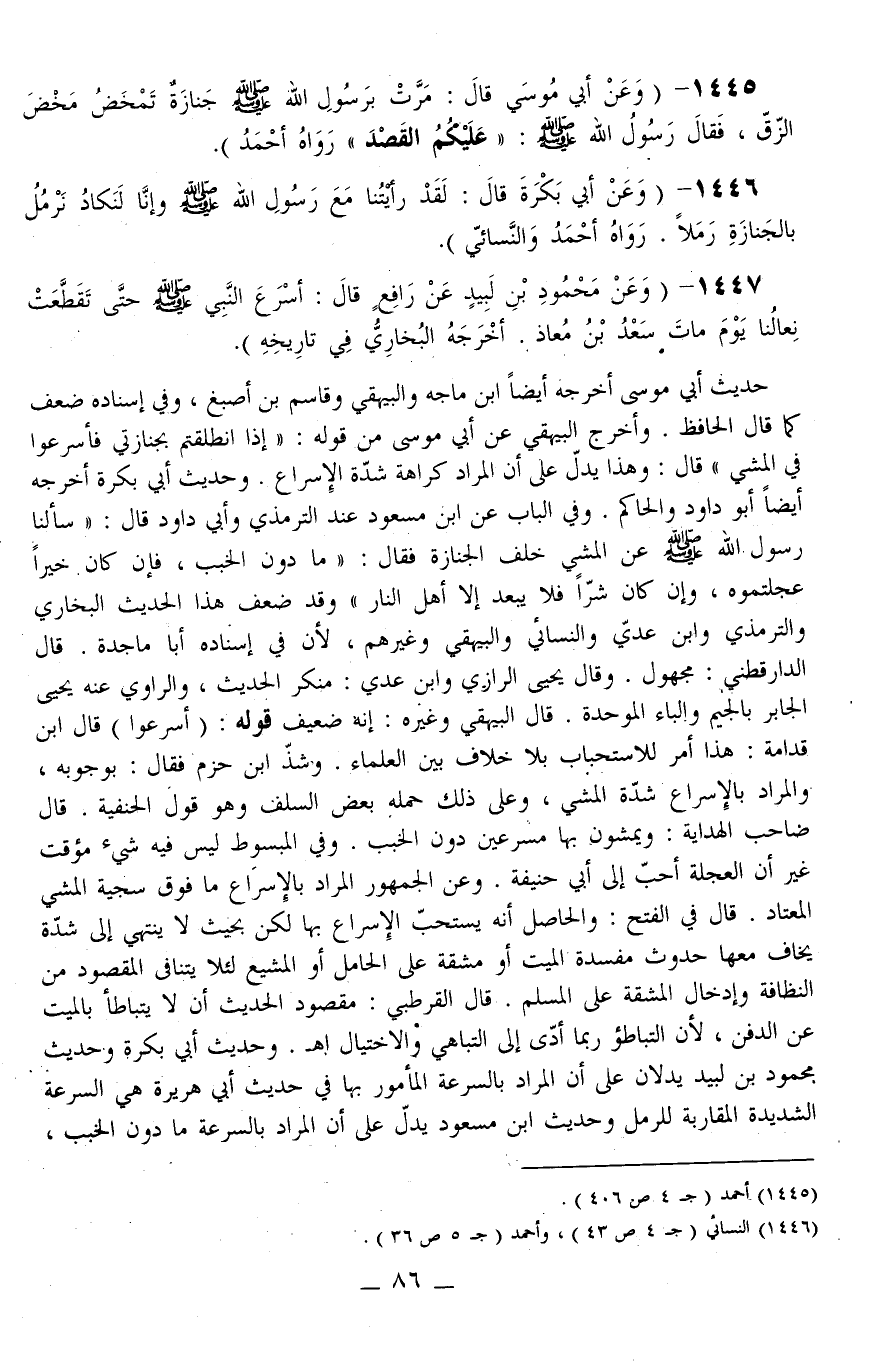 ١٤٤٥- ( وَعَنْ أبي مُوسَي قالَ : مَرَّتْ بِرَسُولِ الله ﷺ جَنازَةٌ تَمْخَضُ مَخْضَ
الزّقّ ، فَقالَ رَسُولُ الله ﷺ : « عَلَيْكُمُ القَصْدَ » رَوَاهُ أحْمَدُ ).
١٤٤٦- ( وَعَنْ أبي بَكْرَةَ قالَ : لَقَدْ رأيْتُنا مَعَ رَسُولِ الله ﷺ وإنَّا لَنَكادُ نَرْمُلُ
بالجَنازَةِ رَمَلاً . رَوَاهُ أحْمَدُ وَالنَّسائيّ ).
١٤٤٧- ( وَعَنْ مَحْمُودِ بْنِ لَبِيدٍ عَنْ رَافِعٍ قالَ : أسْرَعَ النَّبي ﷺ حتَّى تَقَطَّعَتْ
نِعالُنا يَوْمَ ماتَ سَعْدُ بْنُ مُعاذ . أخْرَجَهُ البُخاريُّ فِي تارِيخِهِ ).
حديث أبي موسى أخرجه أيضاً ابن ماجه والبيهقي وقاسم بن أصبغ ، وفي إسناده ضعف
كما قال الحافظ . وأخرج البيهقي عن أبي موسى من قوله : « إذا انطلقتم بجنازتي فأسرعوا
في المشي » قال : وهذا يدلّ على أن المراد كراهة شدّة الإسراع . وحديث أبي بكرة أخرجه
أيضاً أبو داود والحاكم . وفي الباب عن ابن مسعود عند الترمذي وأبي داود قال : « سألنا
رسول الله ﷺ عن المشي خلف الجنازة فقال : « ما دون الخبب ، فإن كان خيراً
عجلتموه ، وإن كان شرّاً فلا يبعد إلا أهل النار » وقد ضعف هذا الحديث البخاري
والترمذي وابن عديّ والنسائي والبيهقي وغيرهم ، لأن في إسناده أبا ماجدة . قال
الدارقطني : مجهول . وقال يحيى الرازي وابن عدي : منكر الحديث ، والراوي عنه يحيى
الجابر بالجيم والباء الموحدة . قال البيهقي وغيره : إنه ضعيف قوله : ( أسرعوا ) قال ابن
قدامة : هذا أمر للاستحباب بلا خلاف بين العلماء . وشذّ ابن حزم فقال : بوجوبه ،
والمراد بالإسراع شدّة المشي ، وعلى ذلك حمله بعض السلف وهو قول الحنفية . قال
صاحب الهداية : ويمشون بها مسرعين دون الخبب . وفي المبسوط ليس فيه شيء مؤقت
غير أن العجلة أحبّ إلى أبي حنيفة . وعن الجمهور المراد بالإسراع ما فوق سجية المشي
المعتاد . قال في الفتح : والحاصل أنه يستحبّ الإسراع بها لكن بحيث لا ينتهي إلى شدّة
يخاف معها حدوث مفسدة الميت أو مشقة على الحامل أو المشيع لئلا يتنافى المقصود من
النظافة وإدخال المشقة على المسلم . قال القرطبي : مقصود الحديث أن لا يتباطأ بالميت
عن الدفن ، لأن التباطؤ ربما أدّى إلى التباهي والاختيال اهـ . وحديث أبي بكرة وحديث
محمود بن لبيد يدلان على أن المراد بالسرعة المأمور بها في حديث أبي هريرة هي السرعة
الشديدة المقاربة للرمل وحديث ابن مسعود يدلّ على أن المراد بالسرعة ما دون الخبب ،
(١٤٤٥) أحمد ( جـ ٤ ص ٤٠٦ ) .
(١٤٤٦) النسائي ( جـ ٤ ص ٤٣ ) ، وأحمد ( جـ ٥ ص ٣٦ ) .
— ٨٦ —